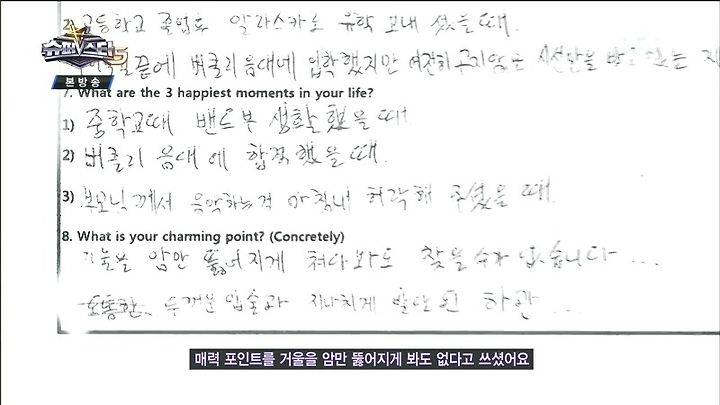 2) 고등학교 졸업후 알라스카로 유학 보내 셨을때.
끝에 버클리 음대에 입학했지만 여전히 곱지않는 시선만을 받고 있는
슈퍼스타 5
본방송
7. What are the 3 happiest moments in your life?
1) 중학교때 밴드부 생활 했을때
2) 버클리 음대에 합격했을때.
3) 부모님께서 음악하는걸 마침내 허락해 주셨을때.
8. What is your charming point? (Concretely)
거울을 암만 뚫어지게 쳐다봐도 찾을수가 없습니다...
도톰한, 두꺼운 입술과 지나치게 발달된 하관...
매력 포인트를 거울을 암만 뚫어지게 봐도 없다고 쓰셨어요